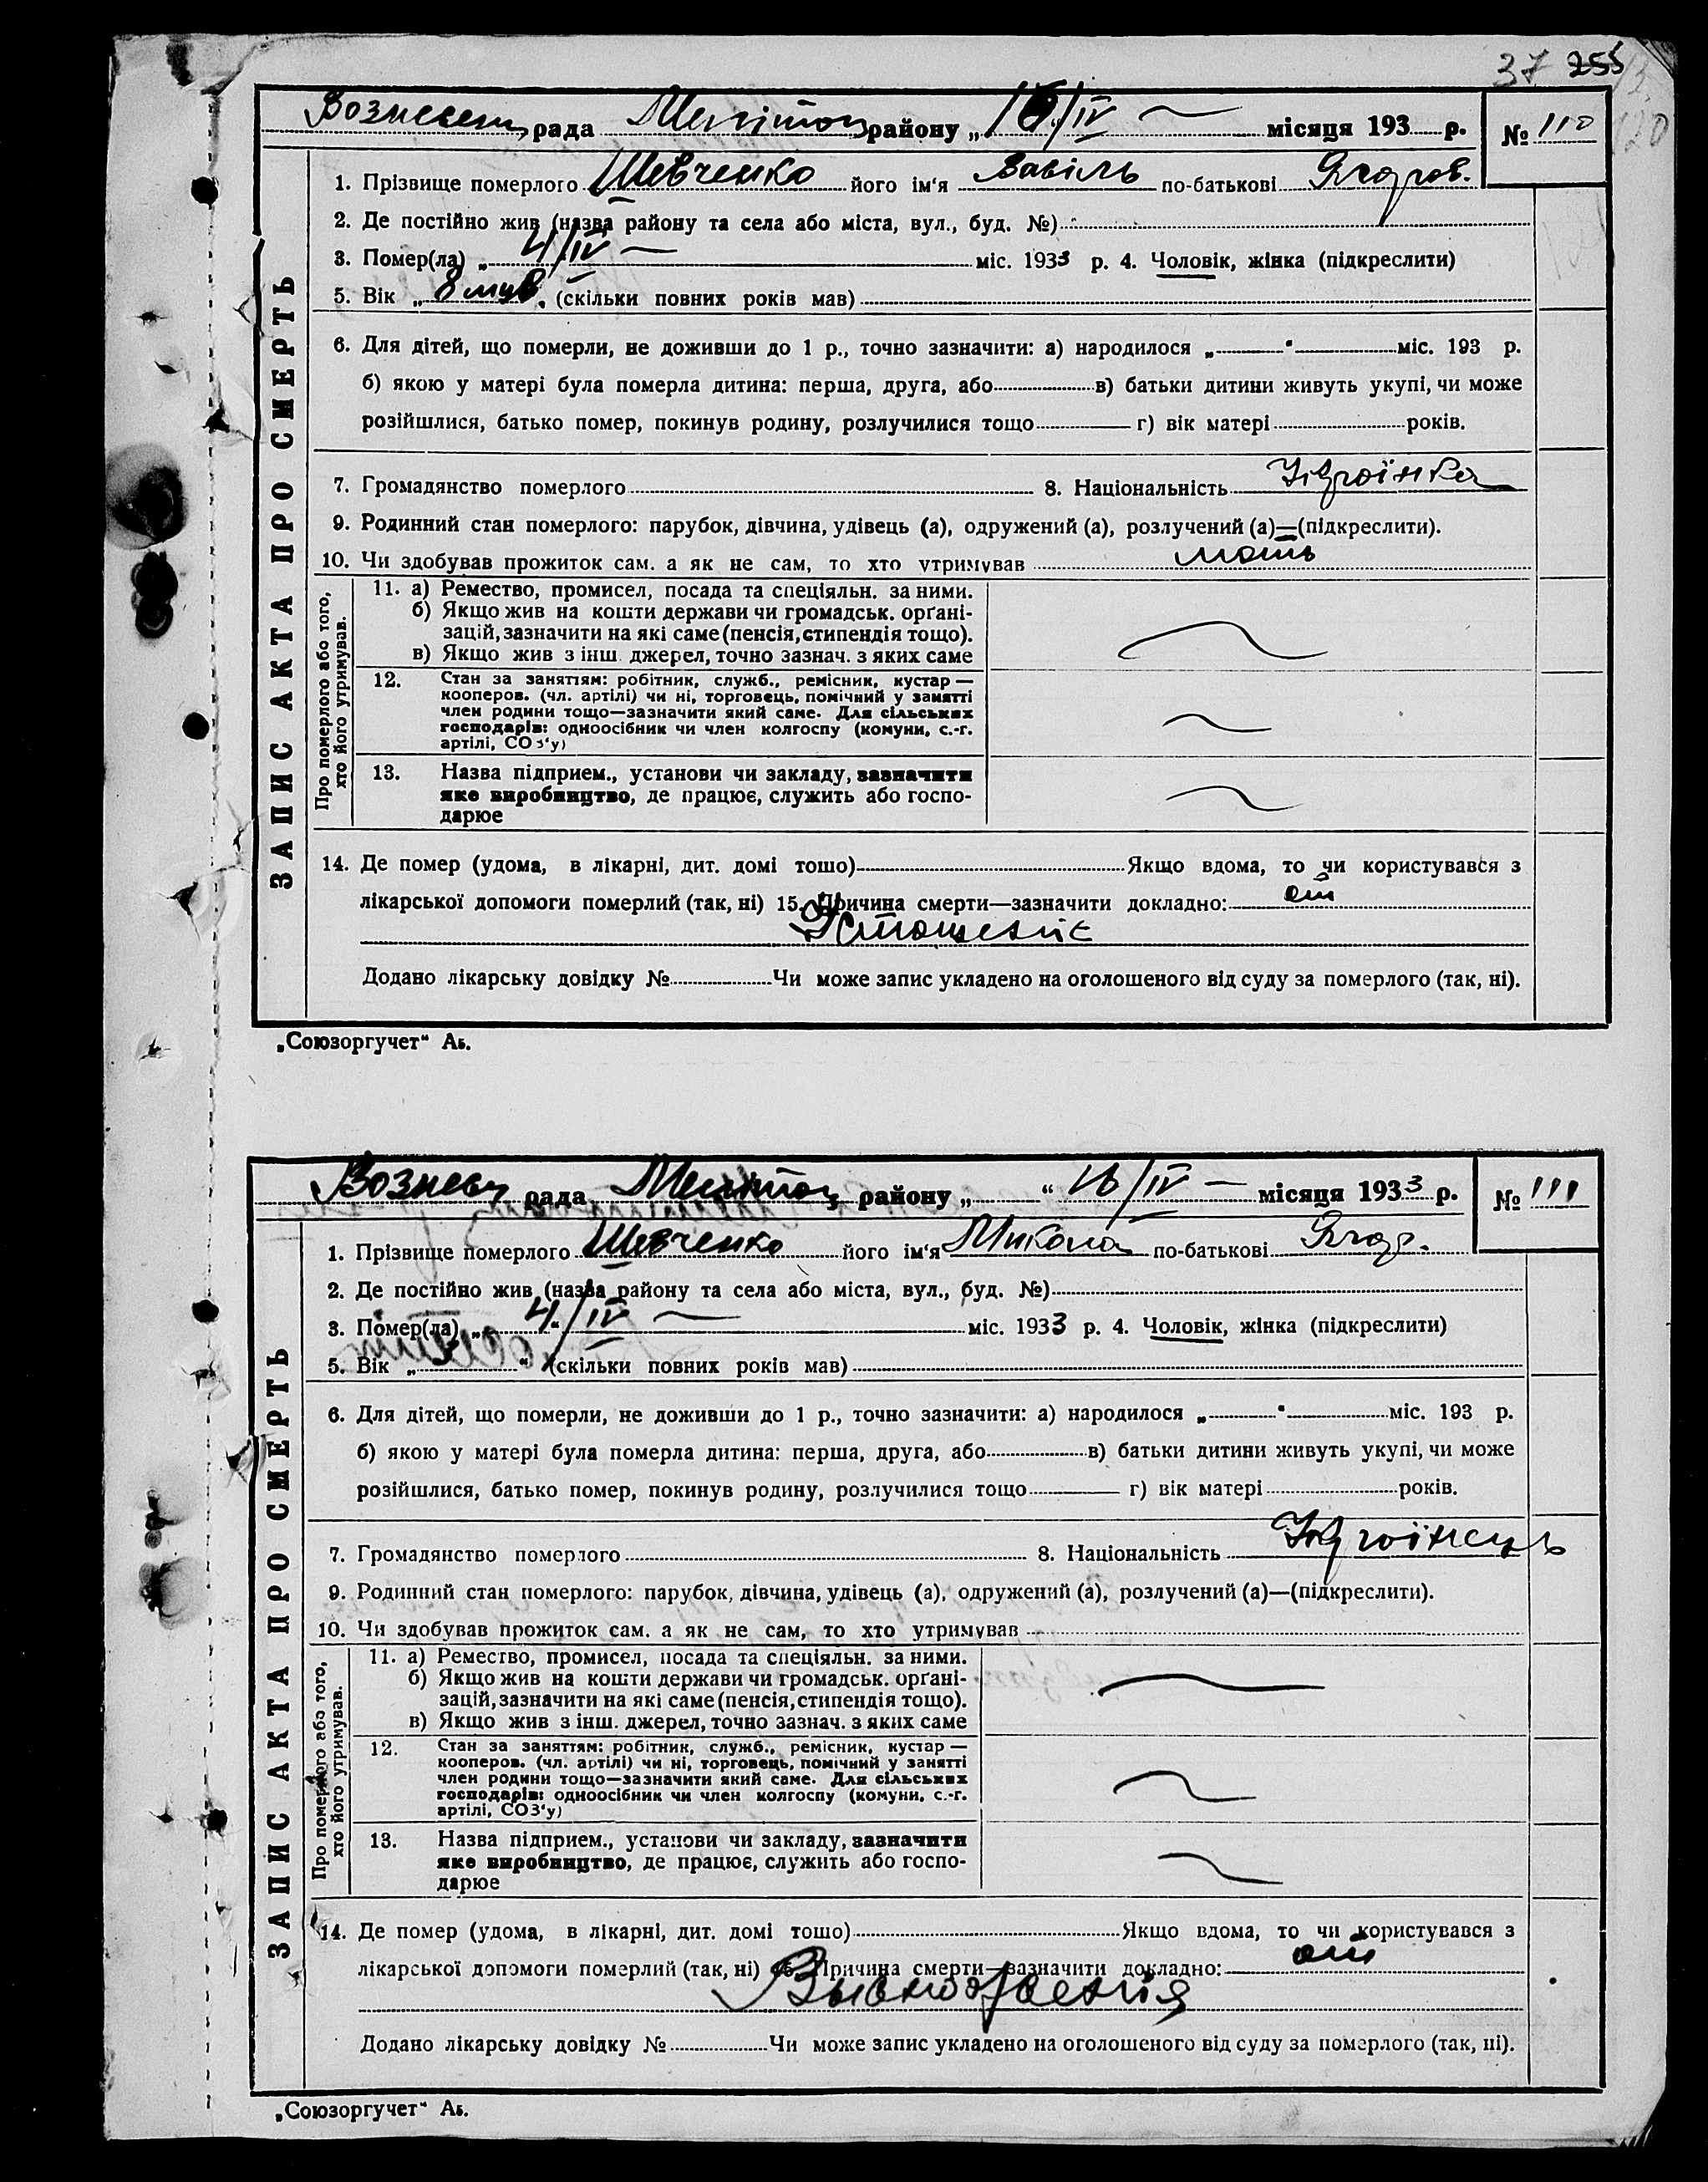 37 255
Вознесен рада Мелітоп району „16/IV місяця 193 р. № 110
1. Прізвище померлого Шевченко його ім‘я Вавіль по-батькові Ягоров.
2. Де постійно жив (назва району та села або міста, вул., буд. №)
3. Помер(ла) „4/IV міс. 1933 р. 4. Чоловік, жінка (підкреслити)
5. Вік „8 мцв“ (скільки повних років мав)
6. Для дітей, що померли, не доживши до 1 р., точно зазначити: а) народилося „ “ міс. 193 р.
б) якою у матері була померла дитина: перша, друга, або в) батьки дитини живуть укупі, чи може
розійшлися, батько помер, покинув родину, розлучилися тощо г) вік матері років.
7. Громадянство померлого 8. Національність Украінка
9. Родинний стан померлого: парубок, дівчина, удівець (а), одружений (а), розлучений (а)—(підкреслити).
10. Чи здобував прожиток сам, а як не сам, то хто утримував мать
ЗАПИС АКТА ПРО СМЕРТЬ
Про померлого або того,
хто його утримував.
11. а) Ремество, промисел, посада та спеціяльн. за ними.
б) Якщо жив на кошти держави чи громадськ. орґані-
зацій, зазначити на які саме (пенсія, стипендія тощо).
в) Якщо жив з інш. джерел, точно зазнач. з яких саме
12. Стан за заняттям: робітник, служб., ремісник, кустар —
кооперов. (чл. артілі) чи ні, торговець, помічний у занятті
член родини тощо—зазначити який саме. Для сільських
господарів: одноосібник чи член колгоспу (комуни, с.-г.
артілі, СОЗ‘у)
13. Назва підприєм., установи чи закладу, зазначити
яке виробництво, де працює, служить або госпо-
дарює
14. Де помер (удома, в лікарні, дит. домі тощо) Якщо вдома, то чи користувався з
лікарської допомоги померлий (так, ні) 15. Причина смерти—зазначити докладно: от
Істощеніє
Додано лікарську довідку № Чи може запис укладено на оголошеного від суду за померлого (так, ні).
„Союзоргучет“ Аб.
Вознесен рада Мелітоп району „ “ 16/IV місяця 1933 р. № 111
1. Прізвище померлого Шевченко його ім‘я Микола по-батькові Ягор.
2. Де постійно жив (назва району та села або міста, вул., буд. №)
3. Помер(ла) „4“/IV міс. 1933 р. 4. Чоловік, жінка (підкреслити)
5. Вік „3“ (скільки повних років мав)
6. Для дітей, що померли, не доживши до 1 р., точно зазначити: а) народилося „ “ міс. 193 р.
б) якою у матері була померла дитина: перша, друга, або в) батьки дитини живуть укупі, чи може
розійшлися, батько помер, покинув родину, розлучилися тощо г) вік матері років.
7. Громадянство померлого 8. Національність Украінець
9. Родинний стан померлого: парубок, дівчина, удівець (а), одружений (а), розлучений (а)—(підкреслити).
10. Чи здобував прожиток сам, а як не сам, то хто утримував
ЗАПИС АКТА ПРО СМЕРТЬ
Про померлого або того,
хто його утримував.
11. а) Ремество, промисел, посада та спеціяльн. за ними.
б) Якщо жив на кошти держави чи громадськ. орґані-
зацій, зазначити на які саме (пенсія, стипендія тощо).
в) Якщо жив з інш. джерел, точно зазнач. з яких саме
12. Стан за заняттям: робітник, служб., ремісник, кустар —
кооперов. (чл. артілі) чи ні, торговець, помічний у занятті
член родини тощо—зазначити який саме. Для сільських
господарів: одноосібник чи член колгоспу (комуни, с.-г.
артілі, СОЗ‘у)
13. Назва підприєм., установи чи закладу, зазначити
яке виробництво, де працює, служить або госпо-
дарює
14. Де помер (удома, в лікарні, дит. домі тощо) Якщо вдома, то чи користувався з
лікарської допомоги померлий (так, ні) 15. Причина смерти—зазначити докладно: от
Додано лікарську довідку № Чи може запис укладено на оголошеного від суду за померлого (так, ні).
„Союзоргучет“ Аб.